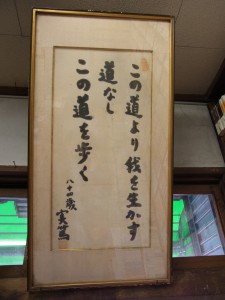 この道より我を生かす
道なし
この道を歩く
八十四歳
実篤